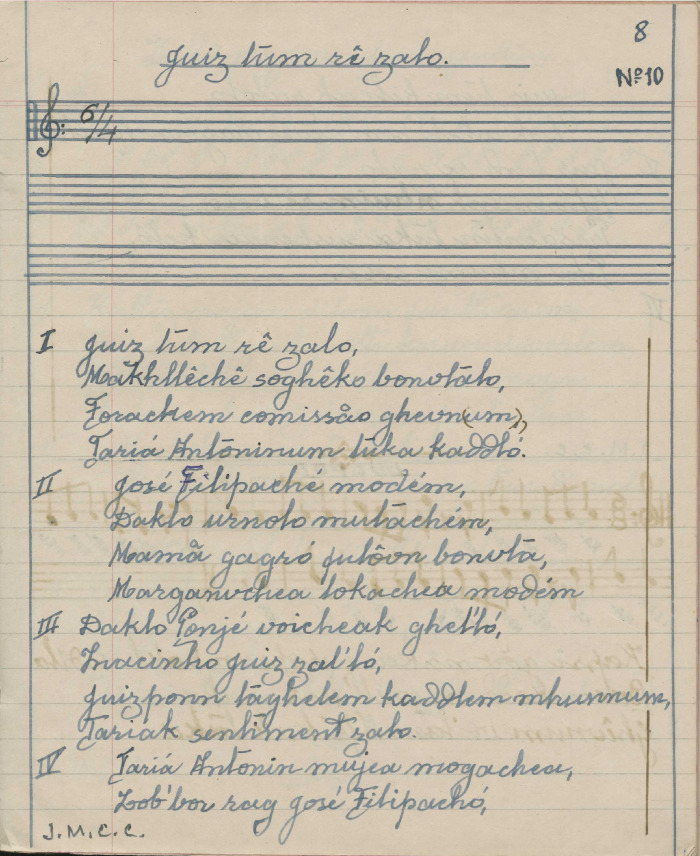 8
Nº10
Juiz tūm rê zalo.
6/4
I Juiz tūm rê zalo,
Mākhllêchê soghêko bonvtālo,
Forackem comissão ghevn(um),
Tariá Antōninum tūka kaddló.
II José Filipaché modém,
Daklo urnolo mutāchém,
Mamã gagró fulôvn bonvtā,
Marganvchea lokachea modém
III Daklo Ponjé voicheak ghel'ló,
Inacinho juiz zal'ló,
Juizponn tāghelem kaddlem mhunnum,
Tariak sentiment zalo.
IV Tariá Antonin mujea mogachea,
Zob'bor rag José Filipachó,
J.M.C.C.